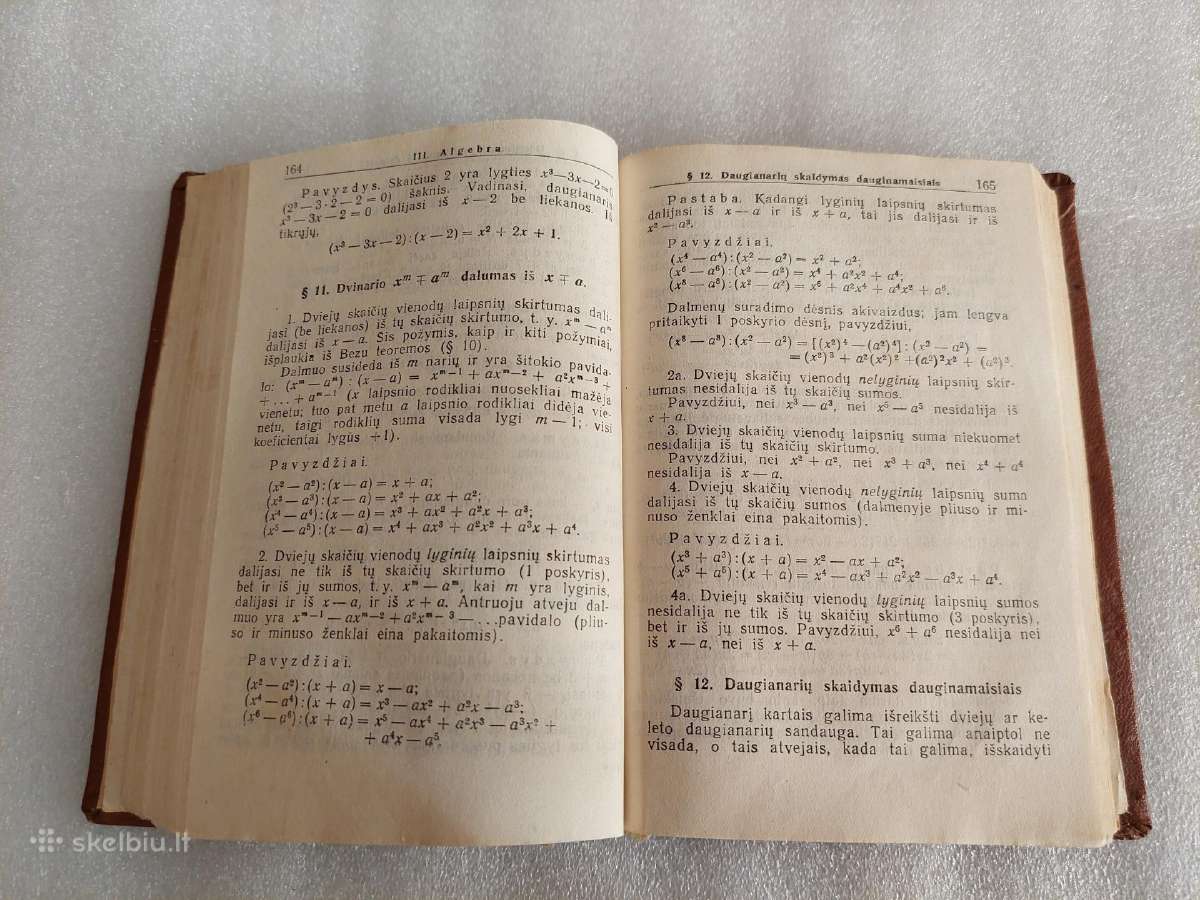 164 III. Algebra
Pavyzdys. Skaičius 2 yra lygties x³—3x—2=0
(2³—3·2—2=0) šaknis. Vadinasi, daugianaris
x³—3x—2=0 dalijasi iš x—2 be liekanos. Iš
tikrųjų,
(x³—3x—2):(x—2)=x²+2x+1.
§ 11. Dvinario xᵐ∓aᵐ dalumas iš x∓a.
1. Dviejų skaičių vienodų laipsnių skirtumas dali-
jasi (be liekanos) iš tų skaičių skirtumo, t. y. xᵐ—aᵐ
dalijasi iš x—a. Šis požymis, kaip ir kiti požymiai,
išplaukia iš Bezu teoremos (§ 10).
Dalmuo susideda iš m narių ir yra šitokio pavida-
lo: (xᵐ—aᵐ):(x—a) = xᵐ⁻¹+axᵐ⁻²+a²xᵐ⁻³+
+...+aᵐ⁻¹ (x laipsnio rodikliai nuosekliai mažėja
vienetu; tuo pat metu a laipsnio rodikliai didėja vie-
netu, taigi rodiklių suma visada lygi m—1; visi
koeficientai lygūs +1).
Pavyzdžiai.
(x²—a²):(x—a)=x+a;
(x³—a³):(x—a)=x²+ax+a²;
(x⁴—a⁴):(x—a)=x³+ax²+a²x+a³;
(x⁵—a⁵):(x—a)=x⁴+ax³+a²x²+a³x+a⁴.
2. Dviejų skaičių vienodų lyginių laipsnių skirtumas
dalijasi ne tik iš tų skaičių skirtumo (1 poskyris),
bet ir iš jų sumos, t. y. xᵐ—aᵐ, kai m yra lyginis,
dalijasi ir iš x—a, ir iš x+a. Antruoju atveju dal-
muo yra xᵐ⁻¹—axᵐ⁻²+a²xᵐ⁻³—...pavidalo (pliu-
so ir minuso ženklai eina pakaitomis).
Pavyzdžiai.
(x²—a²):(x+a)=x—a;
(x⁴—a⁴):(x+a)=x³—ax²+a²x—a³;
(x⁶—a⁶):(x+a)=x⁵—ax⁴+a²x³—a³x²+
+a⁴x—a⁵.
§ 12. Daugianarių skaidymas dauginamaisiais 165
Pastaba. Kadangi lyginių laipsnių skirtumas
dalijasi iš x—a ir iš x+a, tai jis dalijasi ir iš
x²—a².
Pavyzdžiai.
(x⁴—a⁴):(x²—a²)=x²+a²;
(x⁶—a⁶):(x²—a²)=x⁴+a²x²+a⁴;
(x⁸—a⁸):(x²—a²)=x⁶+a²x⁴+a⁴x²+a⁶.
Dalmenų suradimo dėsnis akivaizdus; jam lengva
pritaikyti 1 poskyrio dėsnį, pavyzdžiui,
(x⁸—a⁸):(x²—a²)=[(x²)⁴—(a²)⁴]:(x²—a²)=
=(x²)³+a²(x²)²+(a²)²x²+(a²)³.
2a. Dviejų skaičių vienodų nelyginių laipsnių skir-
tumas nesidalija iš tų skaičių sumos.
Pavyzdžiui, nei x³—a³, nei x⁵—a⁵ nesidalija iš
x+a.
3. Dviejų skaičių vienodų laipsnių suma niekuomet
nesidalija iš tų skaičių skirtumo.
Pavyzdžiui, nei x²+a², nei x³+a³, nei x⁴+a⁴
nesidalija iš x—a.
4. Dviejų skaičių vienodų nelyginių laipsnių suma
dalijasi iš tų skaičių sumos (dalmenyje pliuso ir mi-
nuso ženklai eina pakaitomis).
Pavyzdžiai.
(x³+a³):(x+a)=x²—ax+a²;
(x⁵+a⁵):(x+a)=x⁴—ax³+a²x²—a³x+a⁴.
4a. Dviejų skaičių vienodų lyginių laipsnių sumos
nesidalija ne tik iš tų skaičių skirtumo (3 poskyris),
bet ir iš jų sumos. Pavyzdžiui, x⁶+a⁶ nesidalija nei
iš x—a, nei iš x+a.
§ 12. Daugianarių skaidymas dauginamaisiais
Daugianarį kartais galima išreikšti dviejų ar ke-
leto daugianarių sandauga. Tai galima anaiptol ne
visada, o tais atvejais, kada tai galima, išskaidyti
skelbiu.lt